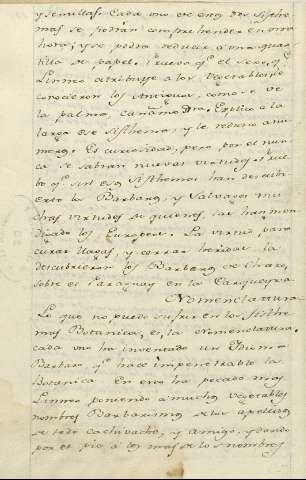 y semillas. Cada uno de estos dos Systhe
mas se podran comprehender en una
hora, y se podra reducir a una qua
rtilla de papel. Nueva q.e el sexo, q.e
Linneo atribuye a los vegetables
conocieron los Antiguos, como se ve
la palma, cañamo &ra. Explico a la
larga ese Systhema, y le reduxo a nu
meros. Es curiosidad, pero por el nun
ca se sabran nuevas virtudes: pues
q.e sin esos Systhemas han descubi
erto los Barbaros, y Salvages mu
chas virtudes de quienes, las han men
digado los Europeos. La virtud para
curar llagas, y cerrar heridas la
descubrieron los Barbaros de Charo,
sobre el Paraguay en la Carqueyxa
Nomenclatura
Lo que no puedo sufrir en los Systhe
mas Botanicos, es, la Nomenclatura.
cada uno ha inventado un Idioma
Barbaro q.e hace impenetrable la
Botanica. En eso ha pecado mas
Linneo poniendo a muchos vegetables
nombres Barbarismos de los apellidos
de todo cachivache, y amigo, y dando
por el pie a los mas de los nombres